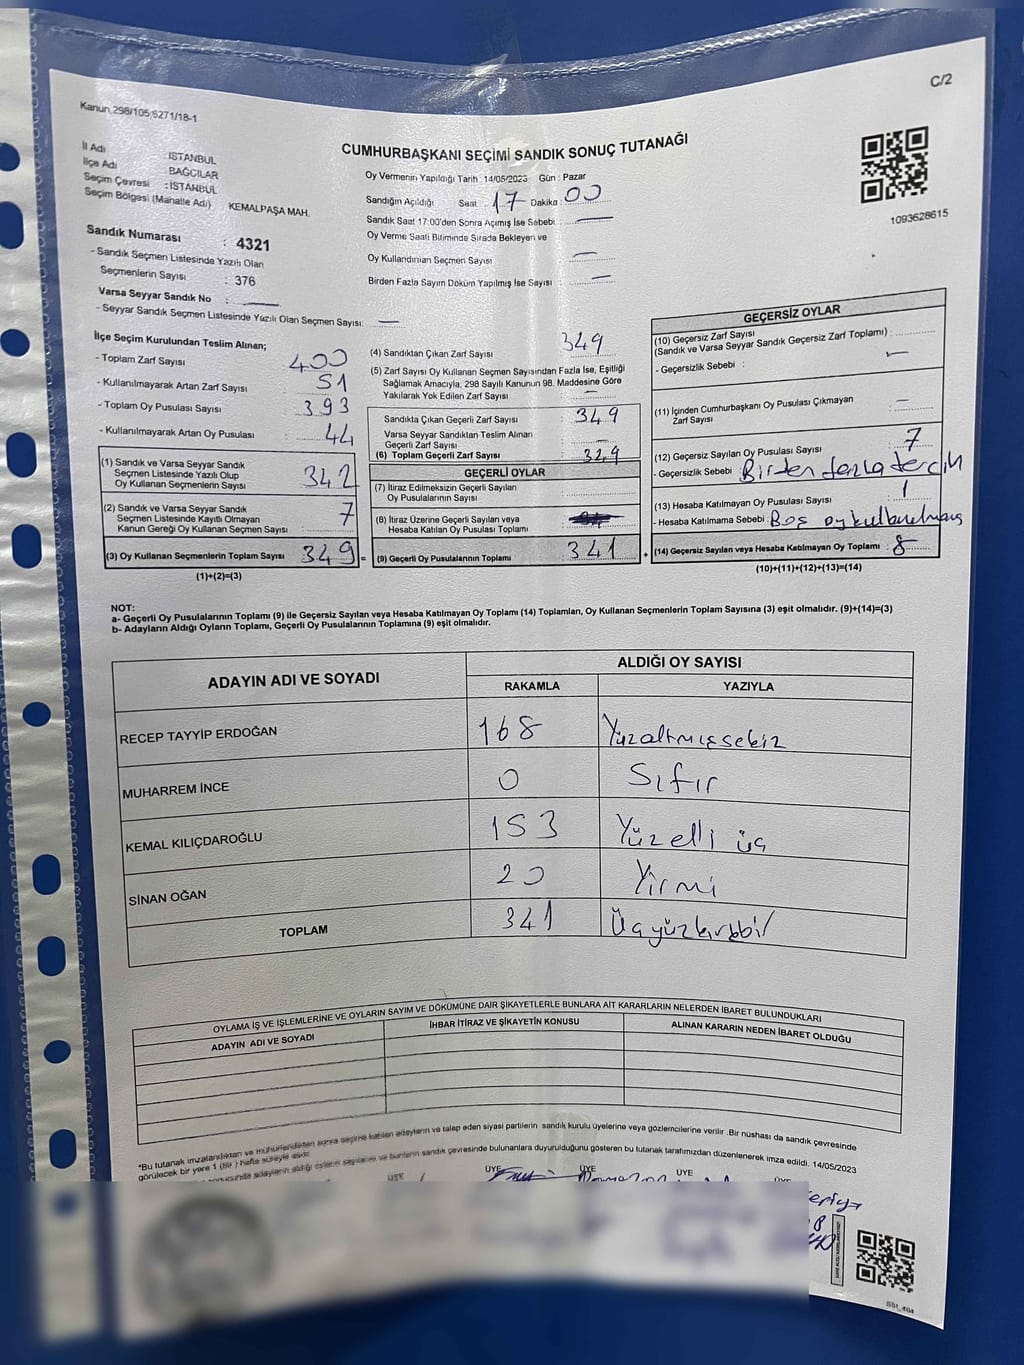 C/2
Kanun 298/105;6271/18-1
CUMHURBAŞKANI SEÇİMİ SANDIK SONUÇ TUTANAĞI
İl Adı : İSTANBUL
İlçe Adı BAĞCILAR
Seçim Çevresi : İSTANBUL
Seçim Bölgesi (Mahalle Adı) KEMALPAŞA MAH.
Sandık Numarası : 4321
- Sandık Seçmen Listesinde Yazılı Olan
Seçmenlerin Sayısı : 376
Varsa Seyyar Sandık No :
- Seyyar Sandık Seçmen Listesinde Yazılı Olan Seçmen Sayısı:
Oy Vermenin Yapıldığı Tarih :14/05/2023 Gün : Pazar
Sandığın Açıldığı Saat : 17 Dakika : 00
Sandık Saat 17:00'den Sonra Açımış İse Sebebi :
Oy Verme Saati Bitiminde Sırada Bekleyen ve
Oy Kullandırılan Seçmen Sayısı :
Birden Fazla Sayım Döküm Yapılmış İse Sayısı :
1093628615
İlçe Seçim Kurulundan Teslim Alınan;
- Toplam Zarf Sayısı : 400
- Kullanılmayarak Artan Zarf Sayısı : 51
- Toplam Oy Pusulası Sayısı : 393
- Kullanılmayarak Artan Oy Pusulası : 44
(1) Sandık ve Varsa Seyyar Sandık
Seçmen Listesinde Yazılı Olup
Oy Kullanan Seçmenlerin Sayısı : 342
(2) Sandık ve Varsa Seyyar Sandık
Seçmen Listesinde Kayıtlı Olmayan
Kanun Gereği Oy Kullanan Seçmen Sayısı : 7
(3) Oy Kullanan Seçmenlerin Toplam Sayısı : 349
(1)+(2)=(3)
(4) Sandıktan Çıkan Zarf Sayısı : 349
(5) Zarf Sayısı Oy Kullanan Seçmen Sayısından Fazla İse, Eşitliği
Sağlamak Amacıyla, 298 Sayılı Kanunun 98. Maddesine Göre
Yakılarak Yok Edilen Zarf Sayısı :
Sandıkta Çıkan Geçerli Zarf Sayısı : 349
Varsa Seyyar Sandıktan Teslim Alınan
Geçerli Zarf Sayısı :
(6) Toplam Geçerli Zarf Sayısı : 349
GEÇERLİ OYLAR
(7) İtiraz Edilmeksizin Geçerli Sayılan
Oy Pusulalarının Sayısı :
(8) İtiraz Üzerine Geçerli Sayılan veya
Hesaba Katılan Oy Pusulası Toplamı :
(9) Geçerli Oy Pusulalarının Toplamı : 341
GEÇERSİZ OYLAR
(10) Geçersiz Zarf Sayısı
(Sandık ve Varsa Seyyar Sandık Geçersiz Zarf Toplamı) :
- Geçersizlik Sebebi :
(11) İçinden Cumhurbaşkanı Oy Pusulası Çıkmayan
Zarf Sayısı :
(12) Geçersiz Sayılan Oy Pusulası Sayısı : 7
- Geçersizlik Sebebi : Birden fazla tercih
(13) Hesaba Katılmayan Oy Pusulası Sayısı : 1
- Hesaba Katılmama Sebebi : Boş oy kullanılmış
(14) Geçersiz Sayılan veya Hesaba Katılmayan Oy Toplamı : 8
(10)+(11)+(12)+(13)=(14)
NOT:
a- Geçerli Oy Pusulalarının Toplamı (9) ile Geçersiz Sayılan veya Hesaba Katılmayan Oy Toplamı (14) Toplamları, Oy Kullanan Seçmenlerin Toplam Sayısına (3) eşit olmalıdır. (9)+(14)=(3)
b- Adayların Aldığı Oyların Toplamı, Geçerli Oy Pusulalarının Toplamına (9) eşit olmalıdır.
ADAYIN ADI VE SOYADI
ALDIĞI OY SAYISI
RAKAMLA YAZIYLA
RECEP TAYYİP ERDOĞAN 168 Yüzaltmışsekiz
MUHARREM İNCE 0 Sıfır
KEMAL KILIÇDAROĞLU 153 Yüzelli üç
SİNAN OĞAN 20 Yirmi
TOPLAM 341 Üçyüzkırkbir
OYLAMA İŞ VE İŞLEMLERİNE VE OYLARIN SAYIM VE DÖKÜMÜNE DAİR ŞİKAYETLERLE BUNLARA AİT KARARLARIN NELERDEN İBARET BULUNDUKLARI
ADAYIN ADI VE SOYADI İHBAR İTİRAZ VE ŞİKAYETİN KONUSU ALINAN KARARIN NEDEN İBARET OLDUĞU
*Bu tutanak imzalandıktan ve mühürlendikten sonra seçime katılan adayların ve talep eden siyasi partilerin sandık kurulu üyelerine veya gözlemcilerine verilir .Bir nüshası da sandık çevresinde
görülecek bir yere 1 (Bir ) hafta süreyle asılır.
adayların aldığı oyların sayılarını ve bunların sandık çevresinde bulunanlara duyurulduğunu gösteren bu tutanak tarafımızdan düzenlenerek imza edildi. 14/05/2023
ÜYE ÜYE ÜYE ÜYE